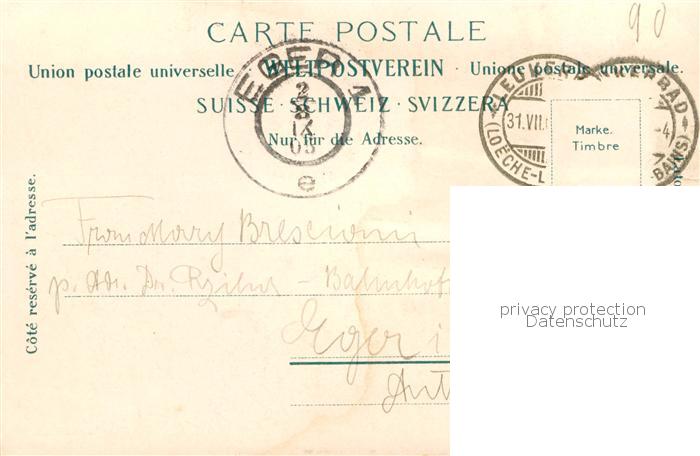 90
CARTE POSTALE
Union postale universelle. WELTPOSTVEREIN · Unione postale universale.
SUISSE · SCHWEIZ · SVIZZERA
Nur für die Adresse.
EGER 1
2
IX
03
e
31.VII.
(LOECHE-L
BAINS)
-4
Marke.
Timbre
Côté réservé à l'adresse.
Mary Bresciani
p. Adr. Dr. – Bahnhof
Eger i
privacy protection
Datenschutz